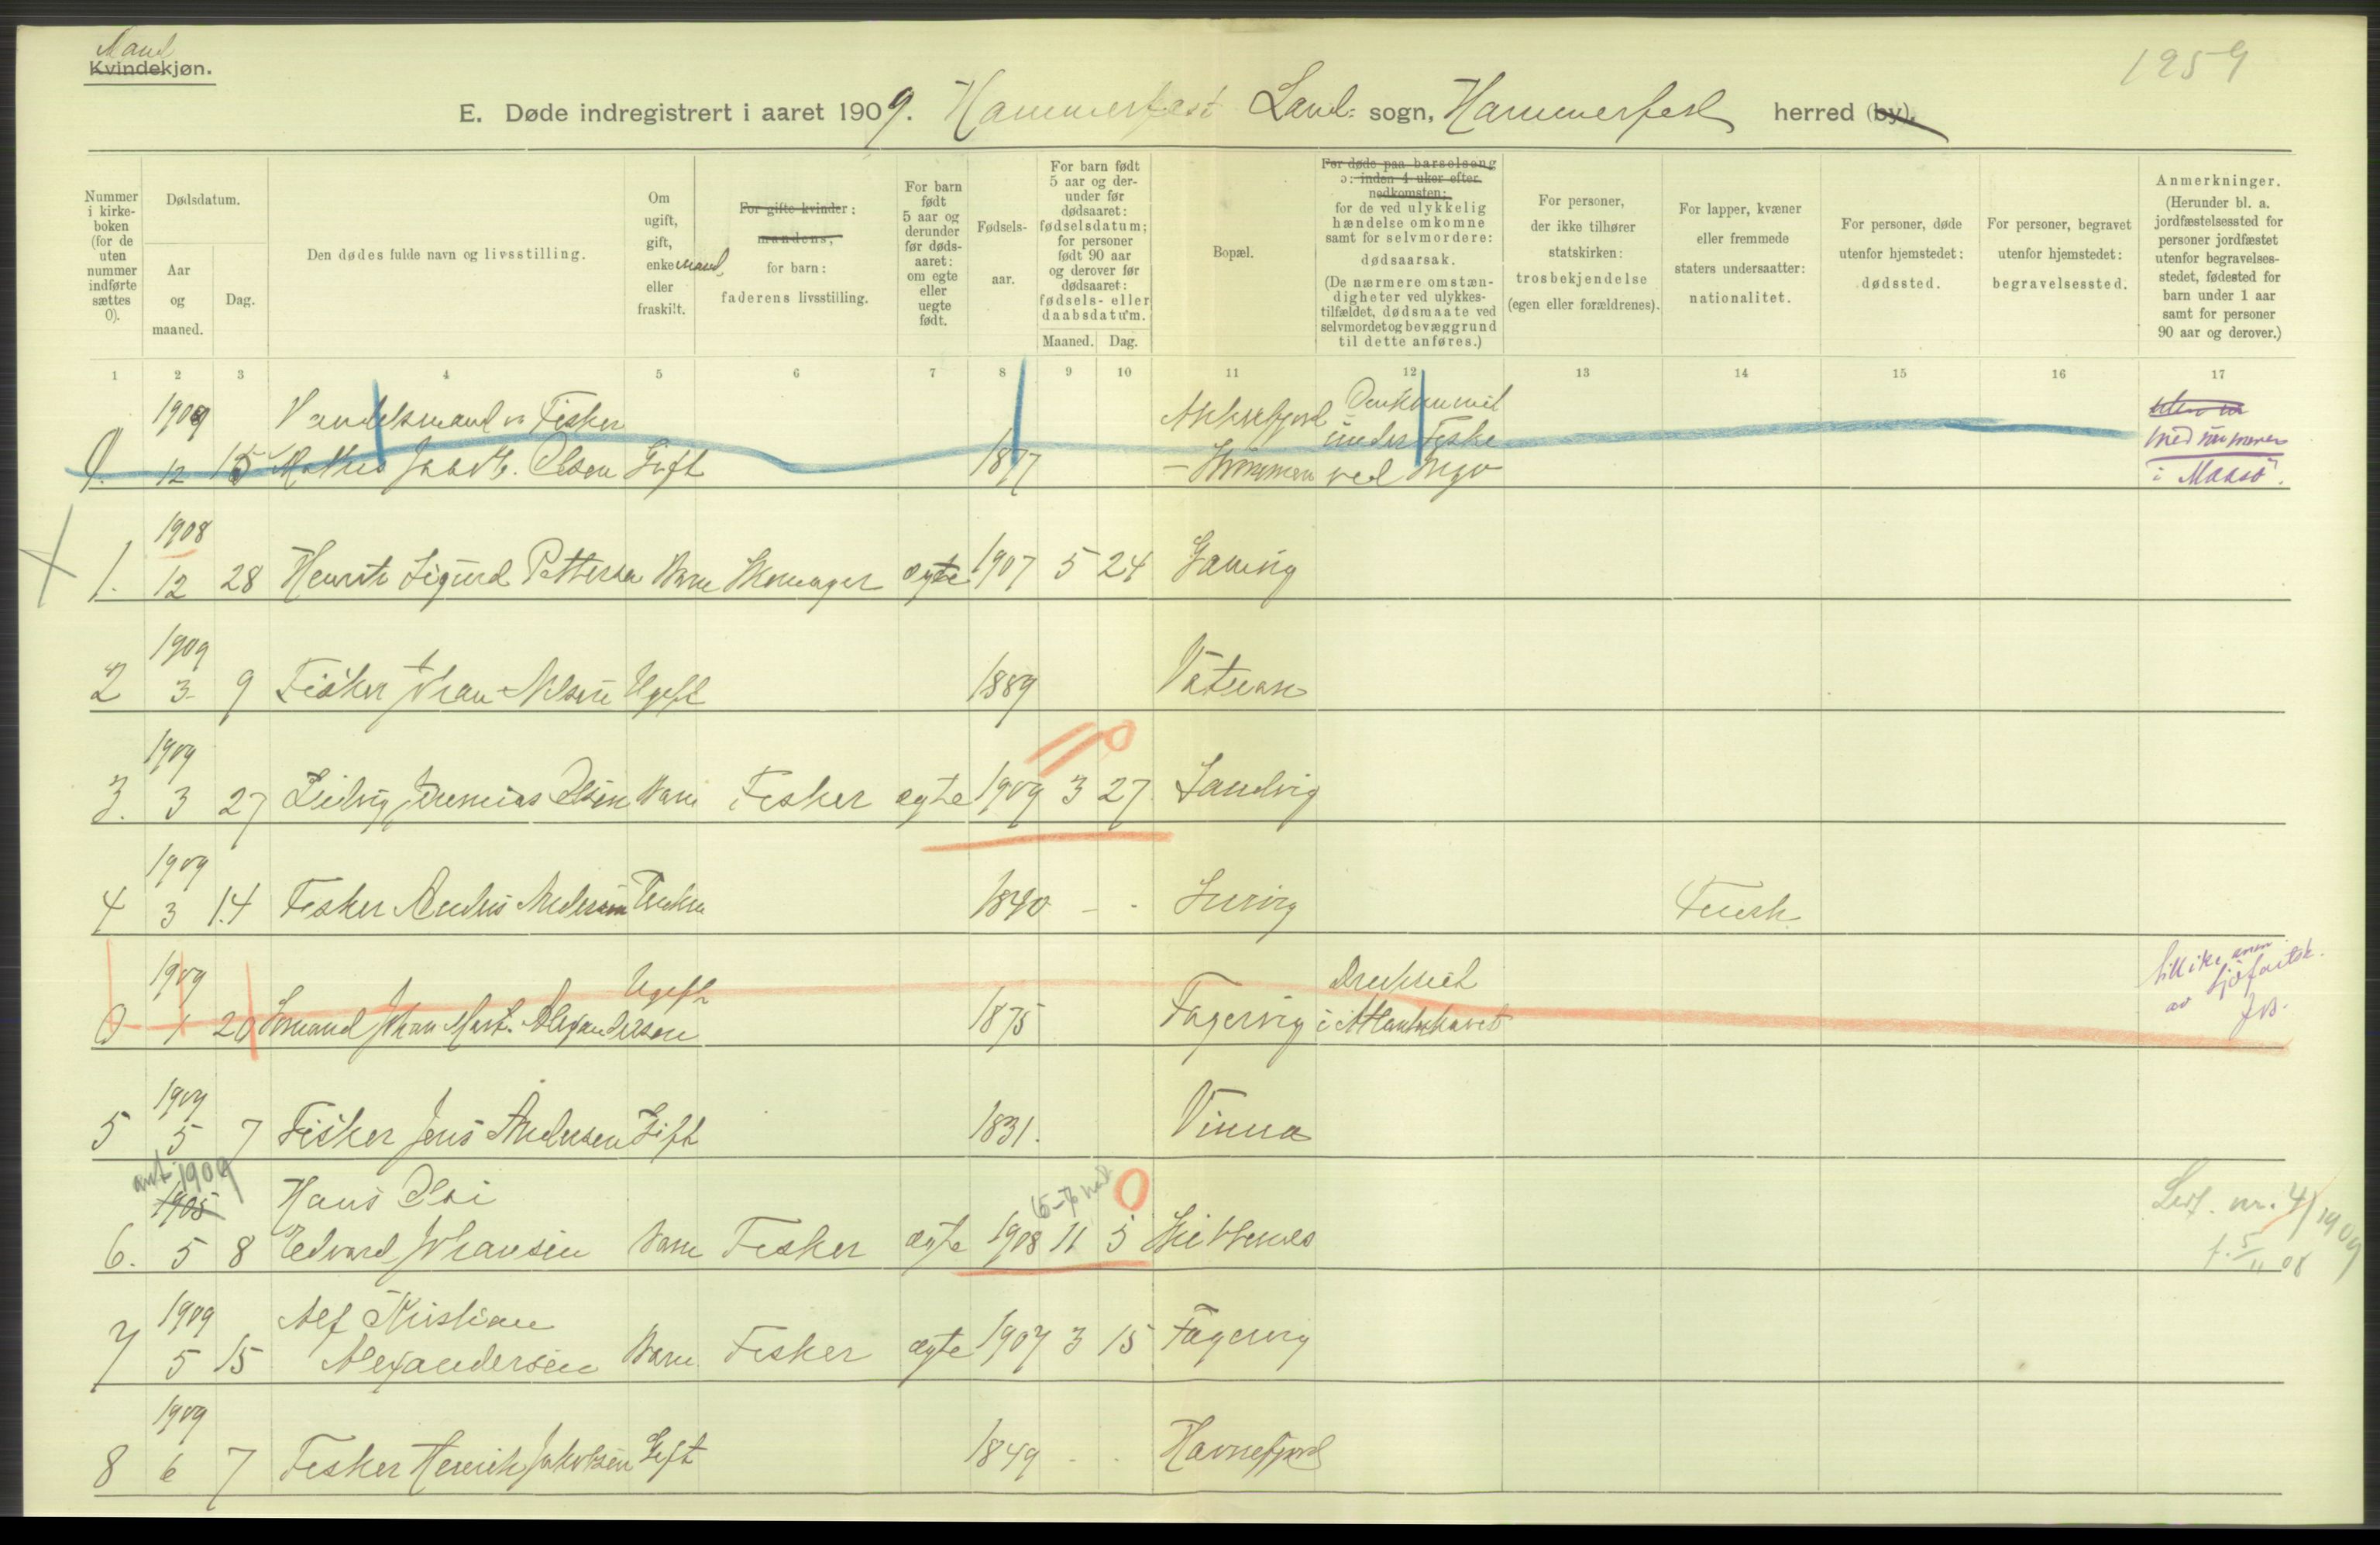 Mand
Kvindekjøn.
1259
E. Døde indregistrert i aaret 1909. Hammerfest Land: sogn, Hammerfest herred (by).
Nummer i kirkeboken (for de uten nummer indførte sættes 0).
Dødsdatum.
Aar og maaned.
Dag.
Den dødes fulde navn og livsstilling.
Om ugift, gift, enkemand, eller fraskilt.
For gifte kvinder: mandens, for barn: faderens livsstilling.
For barn født 5 aar og derunder før dødsaaret: om egte eller uegte født.
Fødselsaar.
For barn født 5 aar og derunder før dødsaaret: fødselsdatum; for personer født 90 aar og derover før dødsaaret: fødsels- eller daabsdatum.
Maaned. Dag.
Bopæl.
For døde paa barselseng ɔ: inden 4 uker efter nedkomsten; for de ved ulykkelig hændelse omkomne samt for selvmordere: dødsaarsak.
(De nærmere omstændigheter ved ulykkestilfældet, dødsmaate ved selvmordet og bevæggrund til dette anføres.)
For personer, der ikke tilhører statskirken: trosbekjendelse (egen eller forældrenes).
For lapper, kvæner eller fremmede staters undersaatter: nationalitet.
For personer, døde utenfor hjemstedet: dødssted.
For personer, begravet utenfor hjemstedet: begravelsessted.
Anmerkninger. (Herunder bl. a. jordfæstelsessted for personer jordfæstet utenfor begravelsesstedet, fødested for barn under 1 aar samt for personer 90 aar og derover.)
1 2 3 4 5 6 7 8 9 10 11 12 13 14 15 16 17
1909 Handelsmand og Fisker Akkarfjord Omkommet
under Fiske
0. 12 15 Olsen Gift 1877 ved Ingø
med nummer
i Maasø.
1908
1. 12 28 Henrik Sigurd Pettersen Barn egte 1907 5 24
1909
2 3 9 Fisker Johan Nilsen Ugift 1889
1909
3. 3 27 Ludvig Jeremias Olsen Barn Fisker egte 1909 3 27 Sandvig
1909
4 3 14 Fisker Anders Andersen Enkem 1840 - - Finsk
1909 Ugift Druknet
0 1 20 Sømand Johan Mart. Alexandersen 1875 Fagervig i Atlanterhavet
av sjøfartsk.
1909
5 5 7 Fisker Jens Andersen Gift 1831. Vinna
ant. 1909
1905 Hans Olai
6. 5 8 Edvard Johansen Barn Fisker egte 1908 11 5
0
nr. 4/1909
f. 5/11 08
1909 Alf Kristian
7 5 15 Alexandersen Barn Fisker egte 1907 3 15 Fagervig
1909
8 6 7 Fisker Henrik Jakobsen Gift 1849 - - Havnefjord